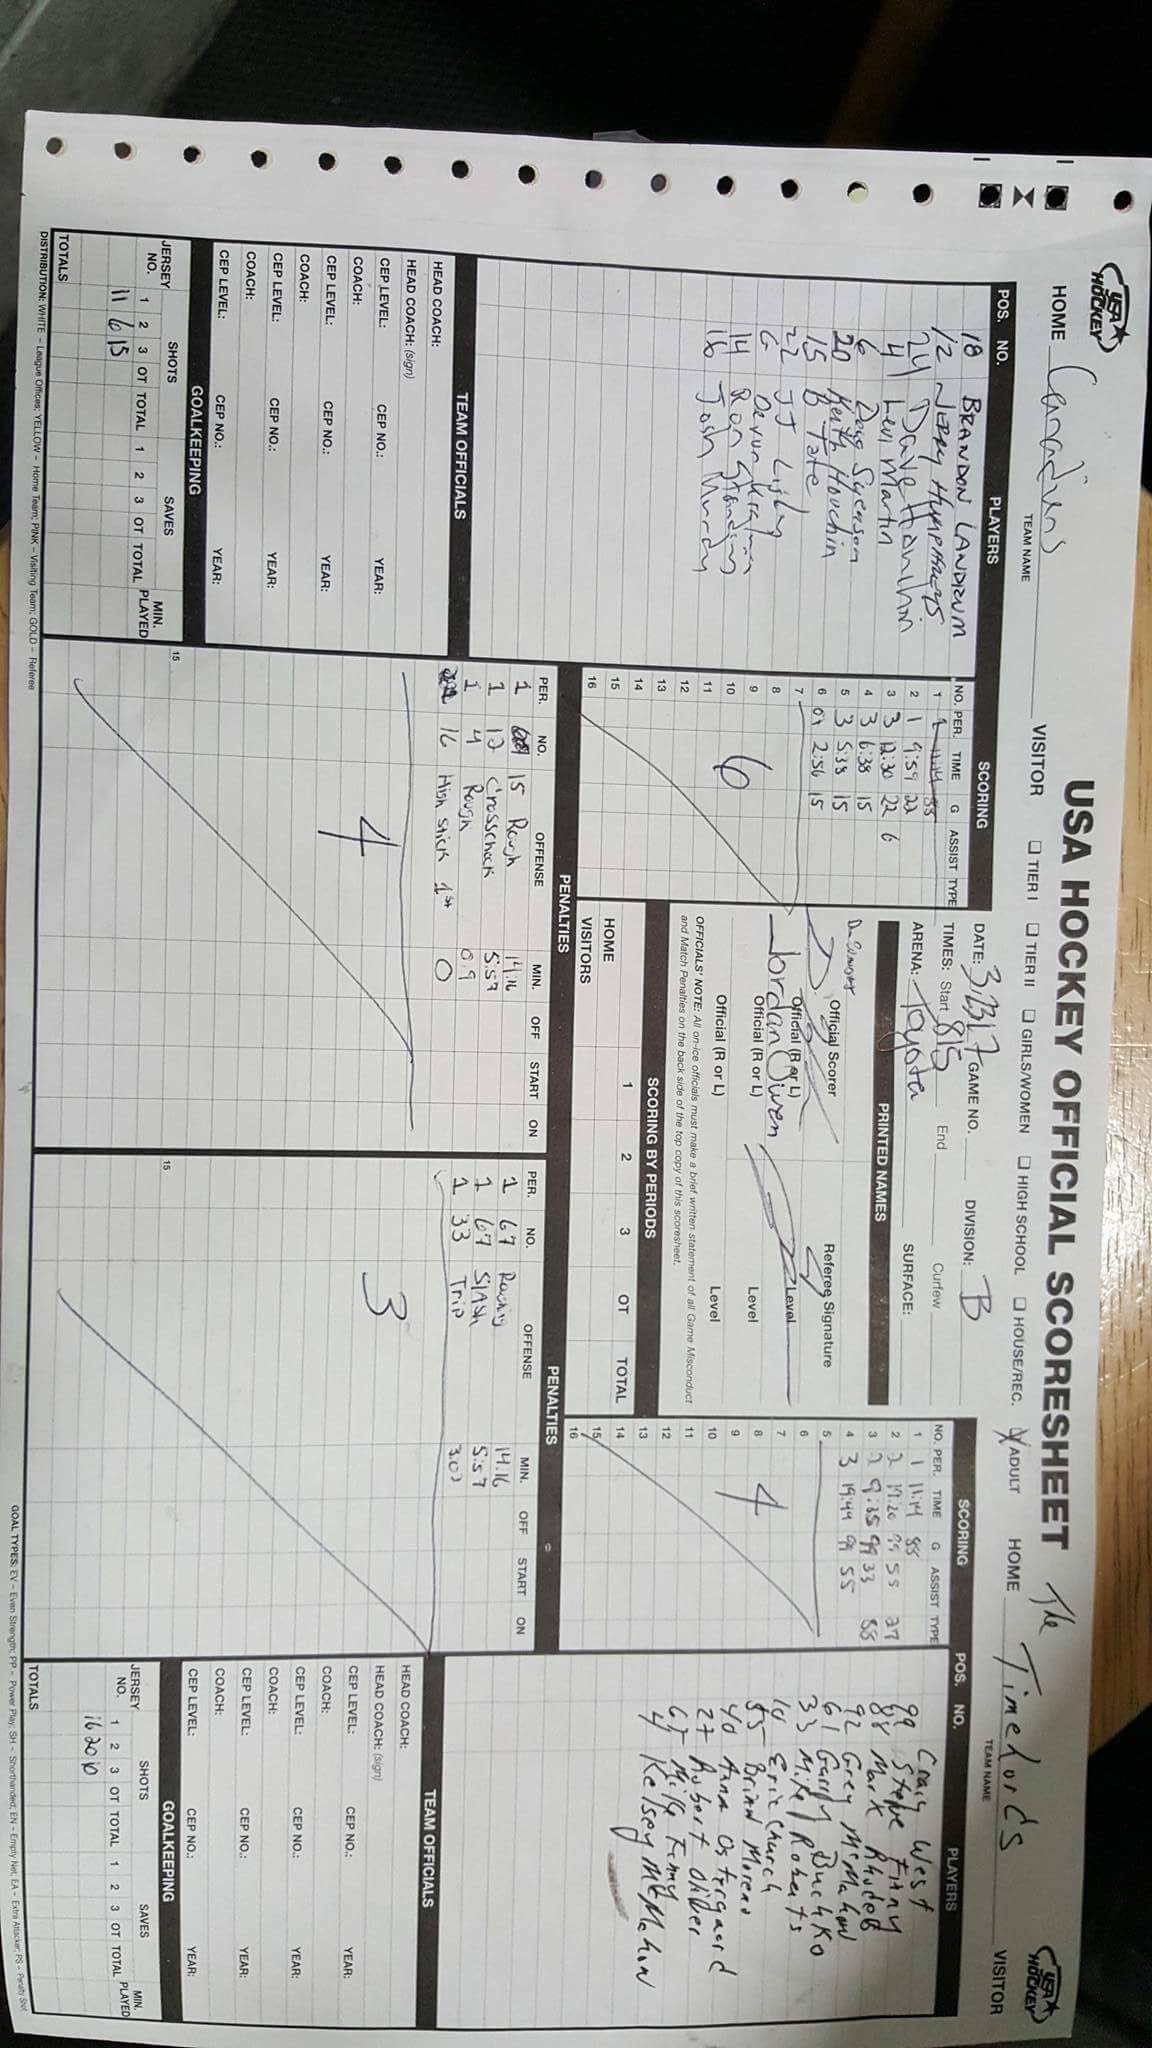 USA HOCKEY OFFICIAL SCORESHEET
USA HOCKEY
HOME Canadiens
TEAM NAME
VISITOR
☐ TIER I ☐ TIER II ☐ GIRLS/WOMEN ☐ HIGH SCHOOL ☐ HOUSE/REC. ☒ ADULT
HOME The Timelords
TEAM NAME
VISITOR
USA HOCKEY
POS. NO. PLAYERS
18 BRANDON LANDRUM
12 JERRY HUMPHREYS
24 Dave
4 Levi Martin
6 Doug Swenson
20 Keith Houchin
15 B Tate
22 JJ Lisby
G Devun
14 Ron
16 Josh Murdy
SCORING
NO. PER. TIME G ASSIST TYPE
1 1 11:14 88
2 1 9:59 22
3 3 12:30 22 6
4 3 6:38 15
5 3 5:38 15
6 2:56 15
7
8
9
10
11
12
13
14
15
16
6
DATE: 3.23.17 GAME NO. DIVISION: B
TIMES: Start 815 End Curfew
ARENA: Toyota SURFACE:
PRINTED NAMES
Official Scorer Referee Signature
Official (R or L) Level
Jordan Owen
Official (R or L) Level
Official (R or L) Level
OFFICIALS' NOTE: All on-ice officials must make a brief written statement of all Game Misconduct
and Match Penalties on the back side of the top copy of this scoresheet.
SCORING BY PERIODS
1 2 3 OT TOTAL
HOME
VISITORS
SCORING
NO. PER. TIME G ASSIST TYPE
1 1 11:14 88
2 2 55 27
3 2 9:35 99 33 88
4 3 19:44 99 55
5
6
7
8
9
10
11
12
13
14
15
16
4
POS. NO. PLAYERS
99 Craig West
Steve Finny
88 Mark Rhudeb
92 Greg McMahon
61 Garry Buchko
33 Mike Roberts
10 Eric Church
55 Brian Moreno
40 Anna Ostergaard
27 Robert Oliber
67 Mike Finny
4 Kelsey McMahon
PENALTIES
PER. NO. OFFENSE MIN. OFF START ON
1 15 Rough 14.16
1 12 Crosscheck 5:57
1 4 Rough 0.9
16 High stick 1st 0
4
15
PENALTIES
PER. NO. OFFENSE MIN. OFF START ON
1 67 Roughing 14.16
1 67 Slash 5:57
1 33 Trip
3
15
TEAM OFFICIALS
HEAD COACH:
HEAD COACH: (sign)
CEP LEVEL: CEP NO.: YEAR:
COACH:
CEP LEVEL: CEP NO.: YEAR:
COACH:
CEP LEVEL: CEP NO.: YEAR:
COACH:
CEP LEVEL: CEP NO.: YEAR:
GOALKEEPING
JERSEY NO. SHOTS SAVES MIN. PLAYED
1 2 3 OT TOTAL 1 2 3 OT TOTAL
11 6 15
TOTALS
TEAM OFFICIALS
HEAD COACH:
HEAD COACH: (sign)
CEP LEVEL: CEP NO.: YEAR:
COACH:
CEP LEVEL: CEP NO.: YEAR:
COACH:
CEP LEVEL: CEP NO.: YEAR:
COACH:
CEP LEVEL: CEP NO.: YEAR:
GOALKEEPING
JERSEY NO. SHOTS SAVES MIN. PLAYED
1 2 3 OT TOTAL 1 2 3 OT TOTAL
16 20 10
TOTALS
DISTRIBUTION: WHITE – League Offices; YELLOW – Home Team; PINK – Visiting Team; GOLD – Referee
GOAL TYPES: EV – Even Strength; PP – Power Play; SH – Shorthanded; EN – Empty Net; EA – Extra Attacker; PS – Penalty Shot